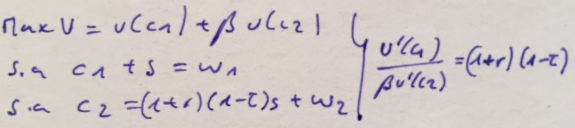 Max V = u(c1) + β u(c2)
s.a c1 + s = w1
s.a c2 = (1+r)(1-τ)s + w2
u'(c1) / βu'(c2) = (1+r)(1-τ)